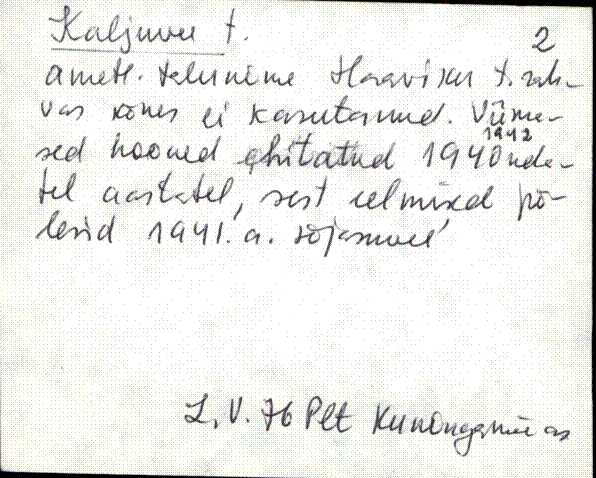 Kaljuvee t.
2
ametl. talunime Haaviku t. rah-
vas kõnes ei kasutanud. Viima-
1942
sed hooned ehitatud 1940nda-
tel aastatel, sest eelmised põ-
lesid 1941. a. sõjasuvel
L. V. 76 Plt Kuningamäe as